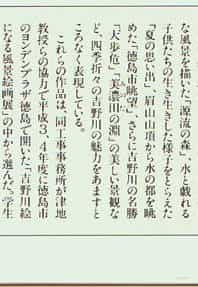 な風景を描いた「源流の森」、水と戯れる
子供たちの生き生きした様子をとらえた
「夏の思い出」、眉山山頂から水の都を眺
めた「徳島市眺望」、さらに吉野川の名勝
「大歩危」「美濃田の淵」の美しい景観な
ど、四季折々の吉野川の魅力をあますと
ころなく表現している。
これらの作品は、同工事事務所が津地
教授らの協力で平成3、4年度に徳島市
のヨンデンプラザ徳島で開いた「吉野川絵
になる風景絵画展」の中から選んだ。学生